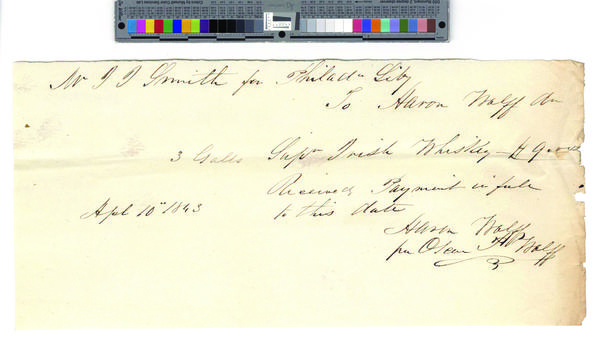 Mr J J Smith for Philada Liby
To Aaron Wolff Dr
3 Galls Supr Irish Whiskey - $9.00
Received Payment in full
Apl 10" 1843 to this date
Aaron Wolff
per Oscar Wolff